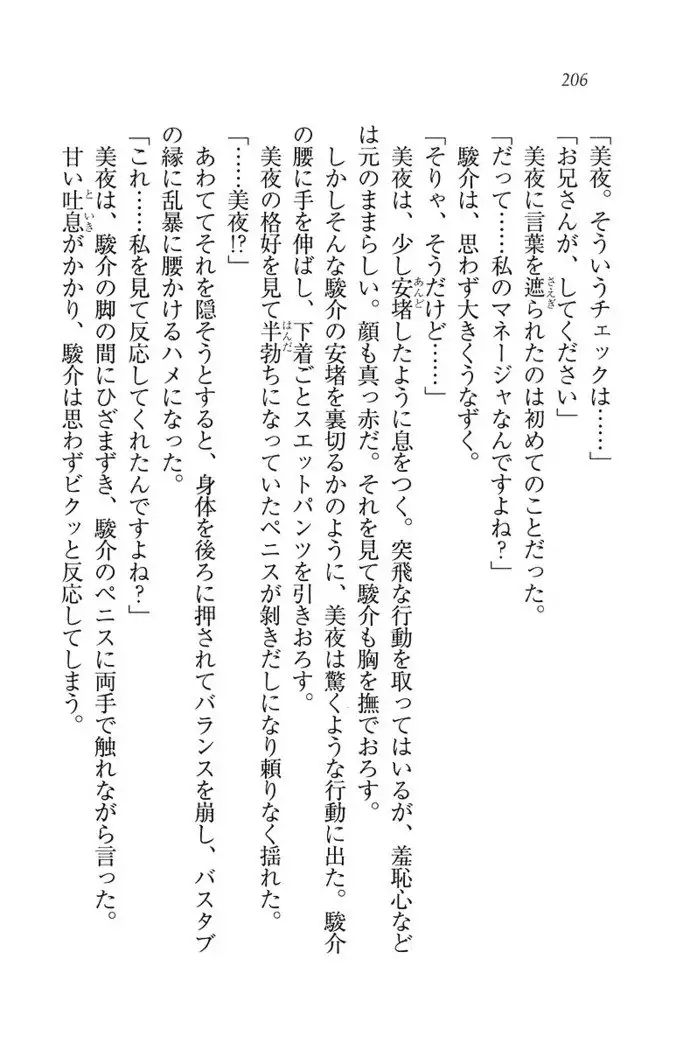 206
「美夜。そういうチェックは……」
「お兄さんが、してください」
美夜に言葉を遮られたのは初めてのことだった。
「だって……私のマネージャなんですよね?」
駿介は、思わず大きくうなずく。
「そりゃ、そうだけど……」
美夜は、少し安堵したように息をつく。突飛な行動を取ってはいるが、羞恥心など
は元のままらしい。顔も真っ赤だ。それを見て駿介も胸を撫でおろす。
しかしそんな駿介の安堵を裏切るかのように、美夜は驚くような行動に出た。駿介
の腰に手を伸ばし、下着ごとスエットパンツを引きおろす。
美夜の格好を見て半勃ちになっていたペニスが剝きだしになり頼りなく揺れた。
「……美夜!?」
あわててそれを隠そうとすると、身体を後ろに押されてバランスを崩し、バスタブ
の縁に乱暴に腰かけるハメになった。
「これ……私を見て反応してくれたんですよね?」
美夜は、駿介の脚の間にひざまずき、駿介のペニスに両手で触れながら言った。
甘い吐息がかかり、駿介は思わずビクッと反応してしまう。